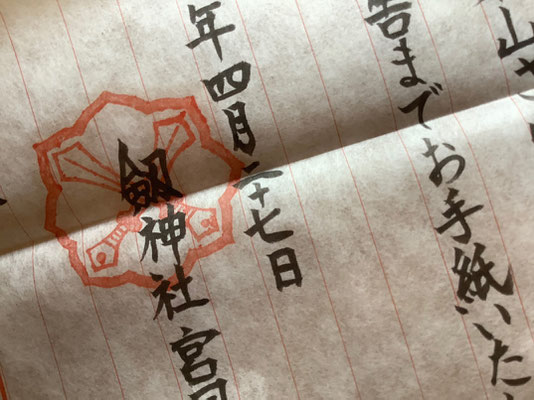 告までお手紙いた
年四月二十七日
劔神社宮司